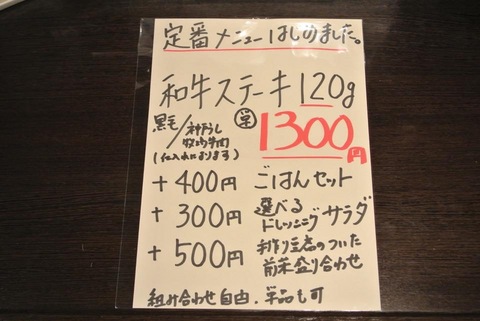 定番メニューはじめました。
和牛ステーキ120g
黒毛/
(仕入れによります)
単 1300円
+400円 ごはんセット
+300円 選べるドレッシングサラダ
+500円 手作り豆腐のついた
前菜盛り合わせ
組み合わせ自由. 単品も可